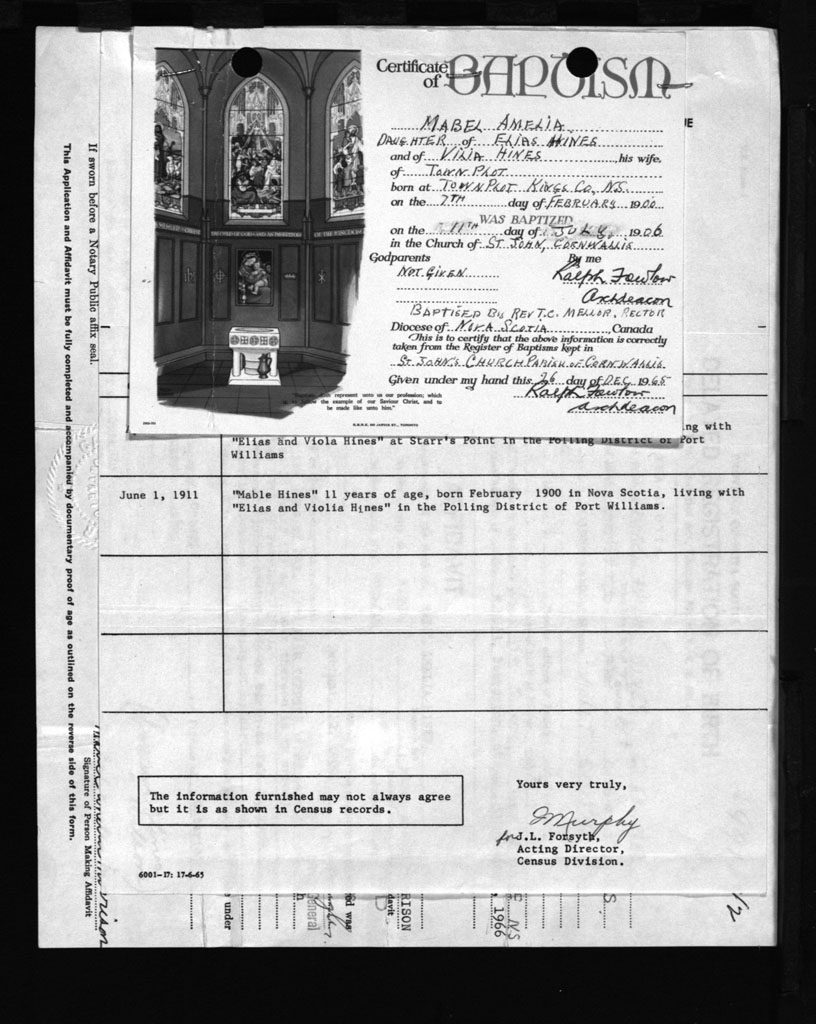 Certificate of BAPTISM
MABEL AMELIA
DAUGHTER of ELIAS HINES
and of VILIA HINES, his wife,
of TOWN PLOT
born at TOWN PLOT KINGS CO, N.S.
on the 7TH day of FEBRUARY 1900
WAS BAPTIZED
on the 11TH day of JULY, 1906
in the Church of ST JOHN, CORNWALLIS
Godparents By me
NOT GIVEN Ralph Fowlow
Archdeacon
BAPTISED BY REV T.C. MELLOR, RECTOR
Diocese of NOVA SCOTIA Canada
This is to certify that the above information is correctly
taken from the Register of Baptisms kept in
ST JOHN'S CHURCH PARISH OF CORNWALLIS
Given under my hand this 26 day of DEC 1965
Ralph Fowlow
Archdeacon
represent unto us our profession; which
the example of our Saviour Christ, and to
be made like unto him."
ing with
"Elias and Viola Hines" at Starr's Point in the Polling District of Port
Williams
June 1, 1911 "Mable Hines" 11 years of age, born February 1900 in Nova Scotia, living with
"Elias and Violia Hines" in the Polling District of Port Williams.
The information furnished may not always agree
but it is as shown in Census records.
Yours very truly,
J Murphy
for J.L. Forsyth,
Acting Director,
Census Division.
6001-17: 17-6-65
If sworn before a Notary Public affix seal.
This Application and Affidavit must be fully completed and accompanied by documentary proof of age as outlined on the reverse side of this form.
Signature of Person Making Affidavit
under
General
RISON
NS
, 1966
1/2